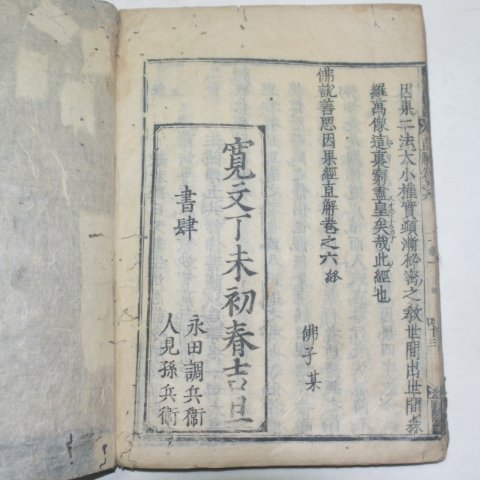 因果二法大小權實頓漸秘密之敎世間出世間森
羅萬像這裏窮盡皇矣哉此經也
佛說善惡因果經直解卷之六終
佛子某
寛文丁未初春吉旦
書肆
永田調兵衞
人見孫兵衞
四十三